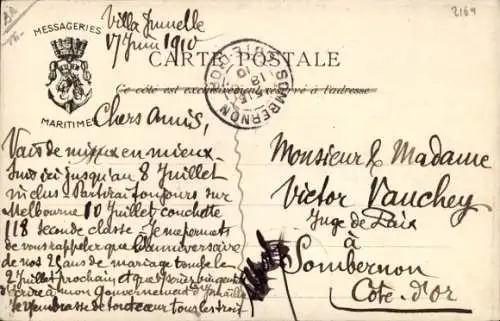 2169
MESSAGERIES
MARITIMES
Villa Jumelle
17 Juin 1910
CARTE POSTALE
Ce côté est exclusivement réservé à l'adresse
SOMBERNON
CÔTE-D'OR
18
10
Chers Amis,
Vais de mieux en mieux.
Suis ici jusqu'au 8 Juillet
inclus. Partirai toujours sur
Melbourne 10 Juillet couchette
118 seconde classe. Je me permets
de vous rappeler que l'anniversaire
de nos 25 ans de mariage tombe le
2 Juillet prochain et que
écrire à mon Gouvernement
Je embrasse de tout cœur tous les trois
Monsieur & Madame
Victor Vauchey
Juge de Paix
à
Sombernon
Côte-d'Or